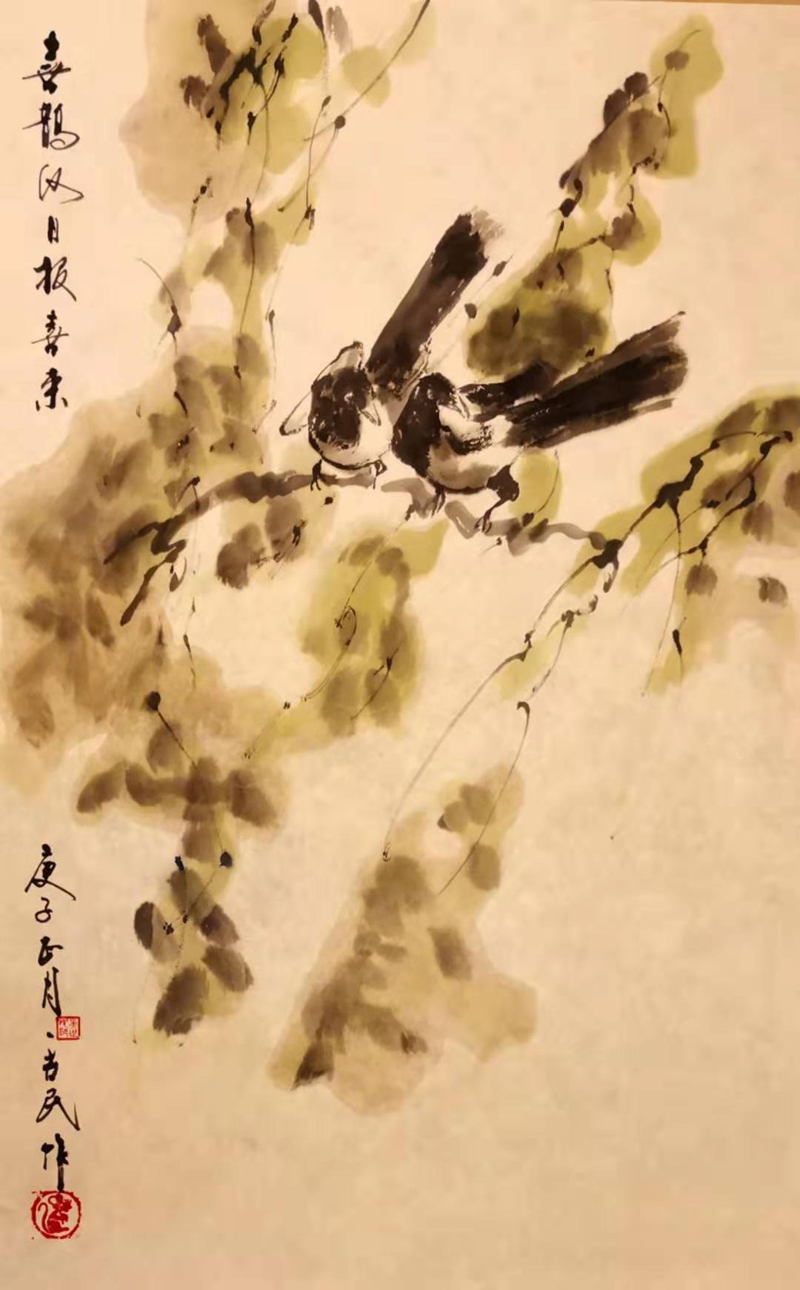 喜鹊汝日报喜来
庚子正月
古民作